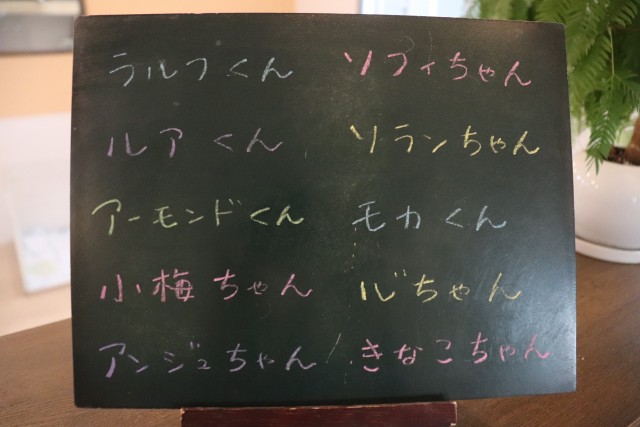 ラルフくん ソフィちゃん
ルアくん ソランちゃん
アーモンドくん モカくん
小梅ちゃん ルビちゃん
アンジュちゃん きなこちゃん